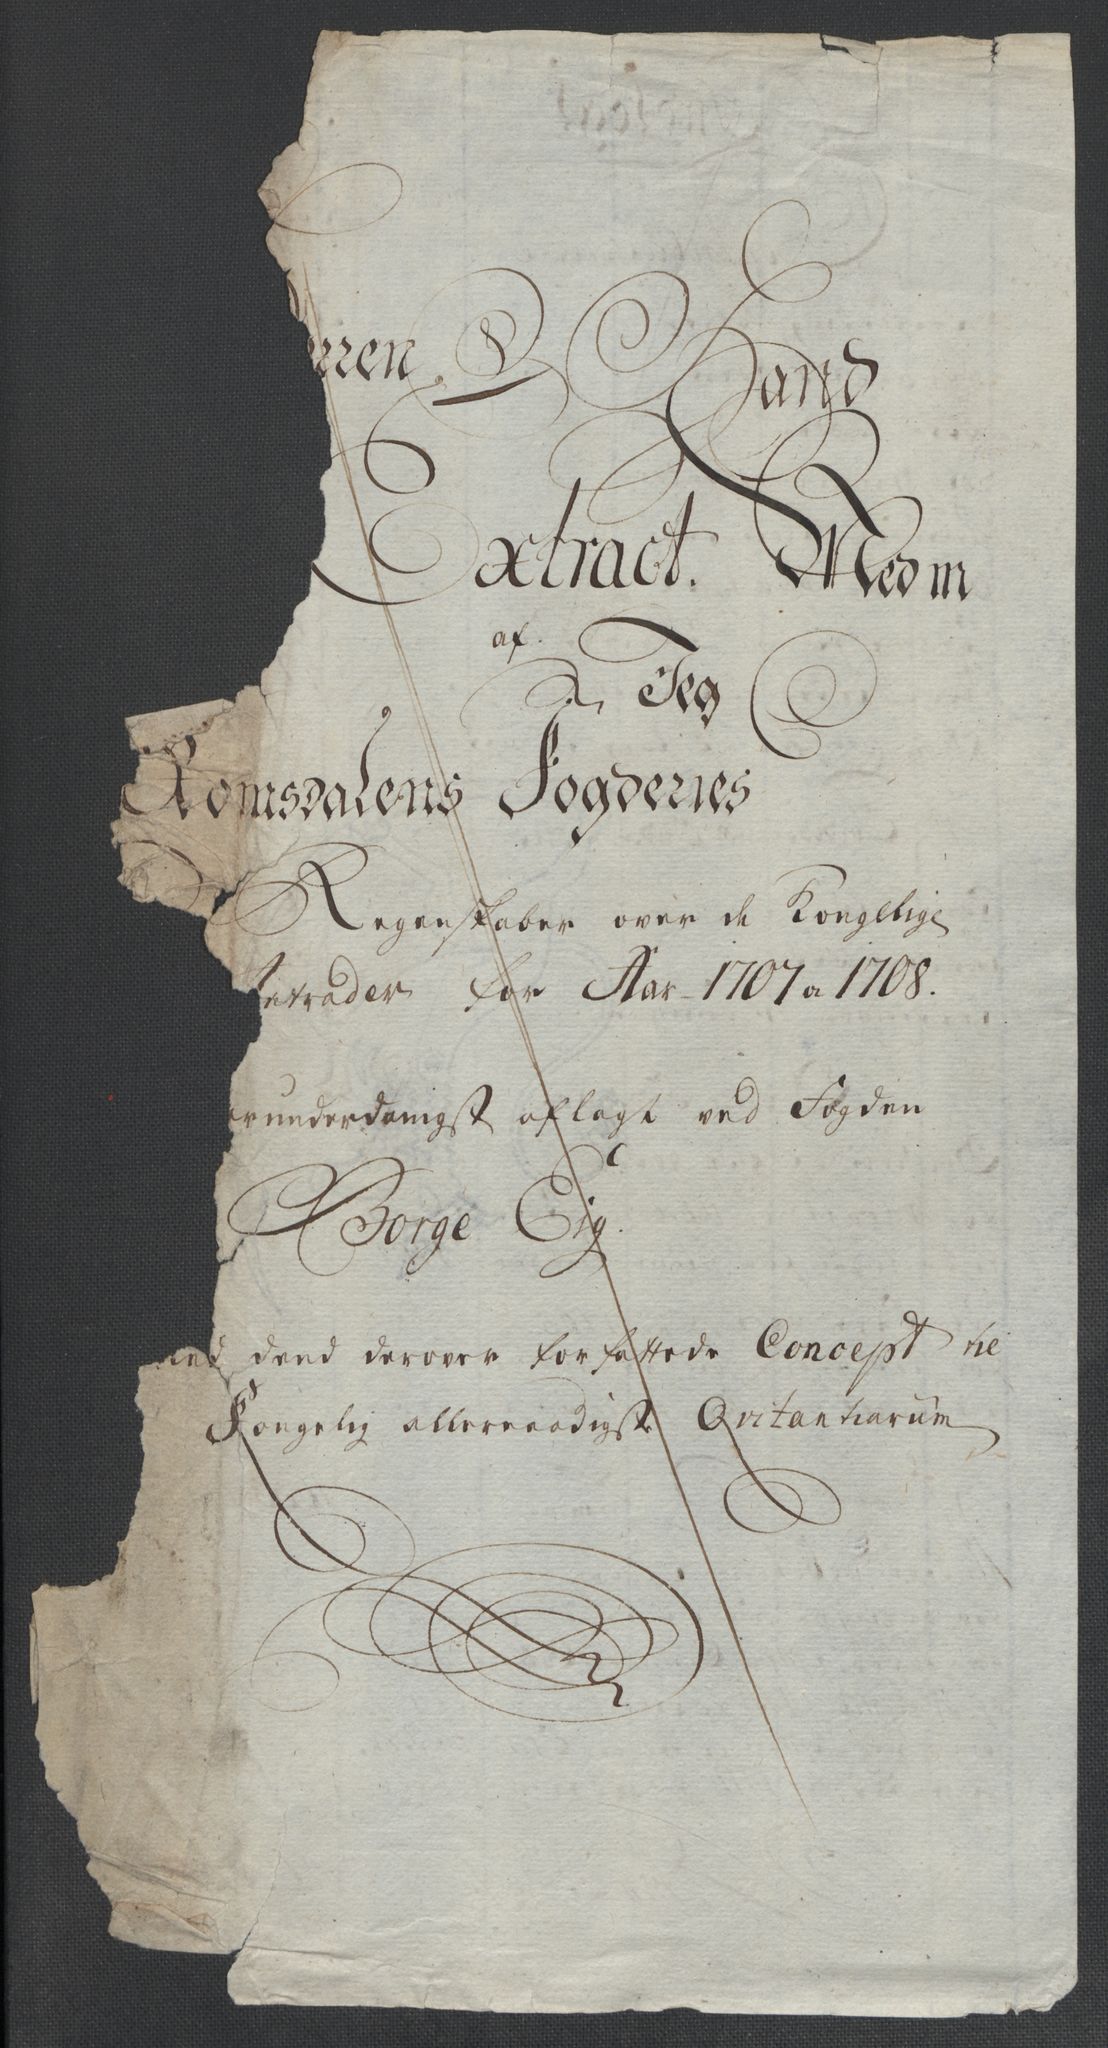 rren Hand
Extract. Medm
af
Teg
Romsdalens Fogderies
Regenskaber over de Kongelige
ntrader for Aar 1707 a 1708.
erunderdanigst aflagt ved Fogden
Borge Eigc.
med dend derover forfattede Concept til
Kongelig allernaadigst Qvitantiarum